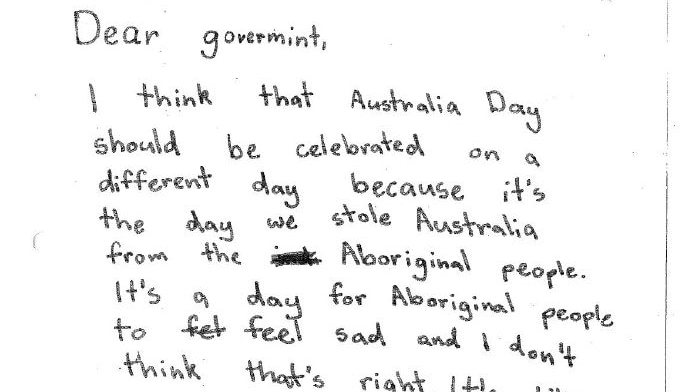 Dear govermint,
I think that Australia Day
should be celebrated on a
different day because it's
the day we stole Australia
from the Aboriginal people.
It's a day for Aboriginal people
to fet feel sad and I don't
think that's right. It's